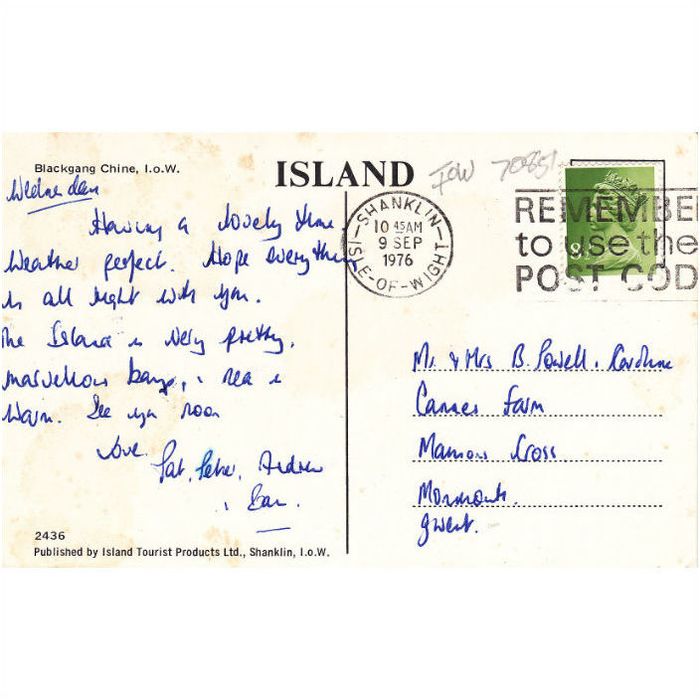 Blackgang Chine, I.o.W.
ISLAND
IOW 7085
SHANKLIN
10 45AM
9 SEP
1976
ISLE-OF-WIGHT
REMEMBE
to use the
POST COD
Wednesday
Having a lovely time
Weather perfect. Hope everything
is all right with you.
The Island is very pretty.
marvellous bays, & sea is
Warm. See you soon
Love
Pat, Peter, Andrew
&
Mr & Mrs B. Powell. Caroline
Farm
Cross
Monmouth.
Gwent.
2436
Published by Island Tourist Products Ltd., Shanklin, I.o.W.